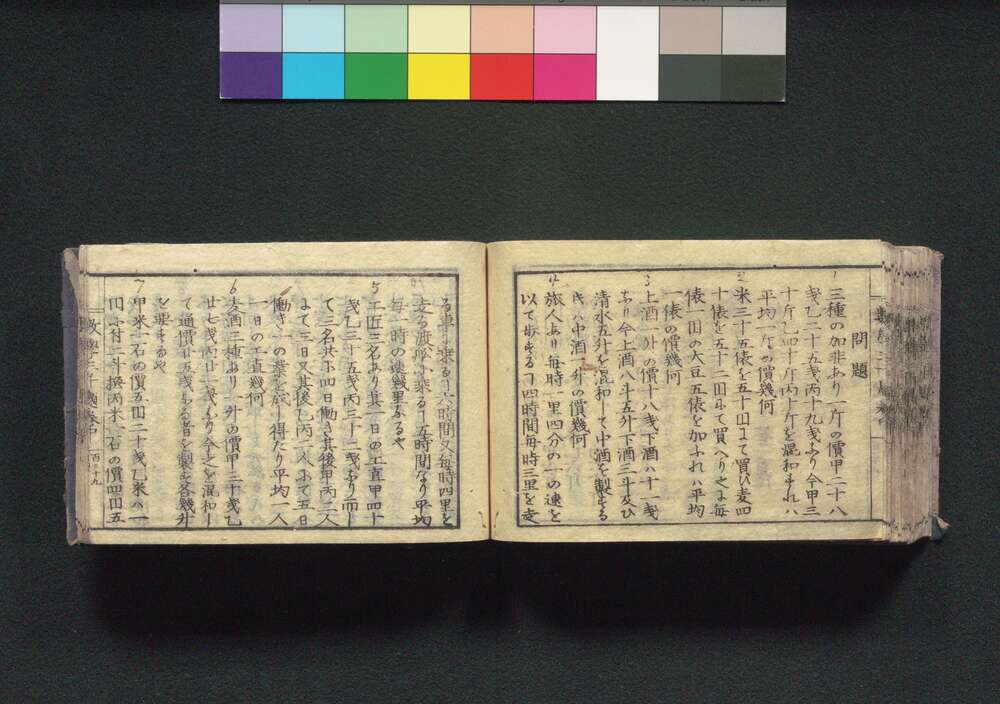 問題
1 三種の加非あり一斤の價甲二十八
戔乙二十五戔丙十九戔あり今甲三
十斤乙四十斤丙十斤を混和すれハ
平均一斤の價幾何
2 米三十五俵を五十圓にて買ひ麦四
十俵を五十二圓にて買へり之に每
俵一圓の大豆五俵を加ふれハ平均
一俵の價幾何
3 上酒一升の價十八戔下酒ハ十一戔
あり今上酒八斗五升下酒三斗及ひ
清水五升を混和して中酒を製する
时ハ中酒一升の價幾何
4 旅人あり每時一里四分の一の速を
以て步する丁四時間每時三里を走
る車に乘る丁六時間又每時四里を
走る渡舩小乘る丁五時間なり平均
每一時の速幾里なるや
5 工匠三名あり其一日の工直甲四十
戔乙三十五戔丙三十二戔あり而し
て三名共小四日働き其後甲丙二人
にて三日又其後乙丙二人にて五日
働き一の業を成し得たり平均一人
一日の工直幾何
6 麦酒三種あり一升の價甲三十戔乙
廿七戔丙廿一戔あり今之を混和し
て通價廿五戔なる者を製す各幾升
を要するや
7 甲米一石の價五圓二十戔乙米ハ一
圓小付二斗換丙米一石の價四圓五